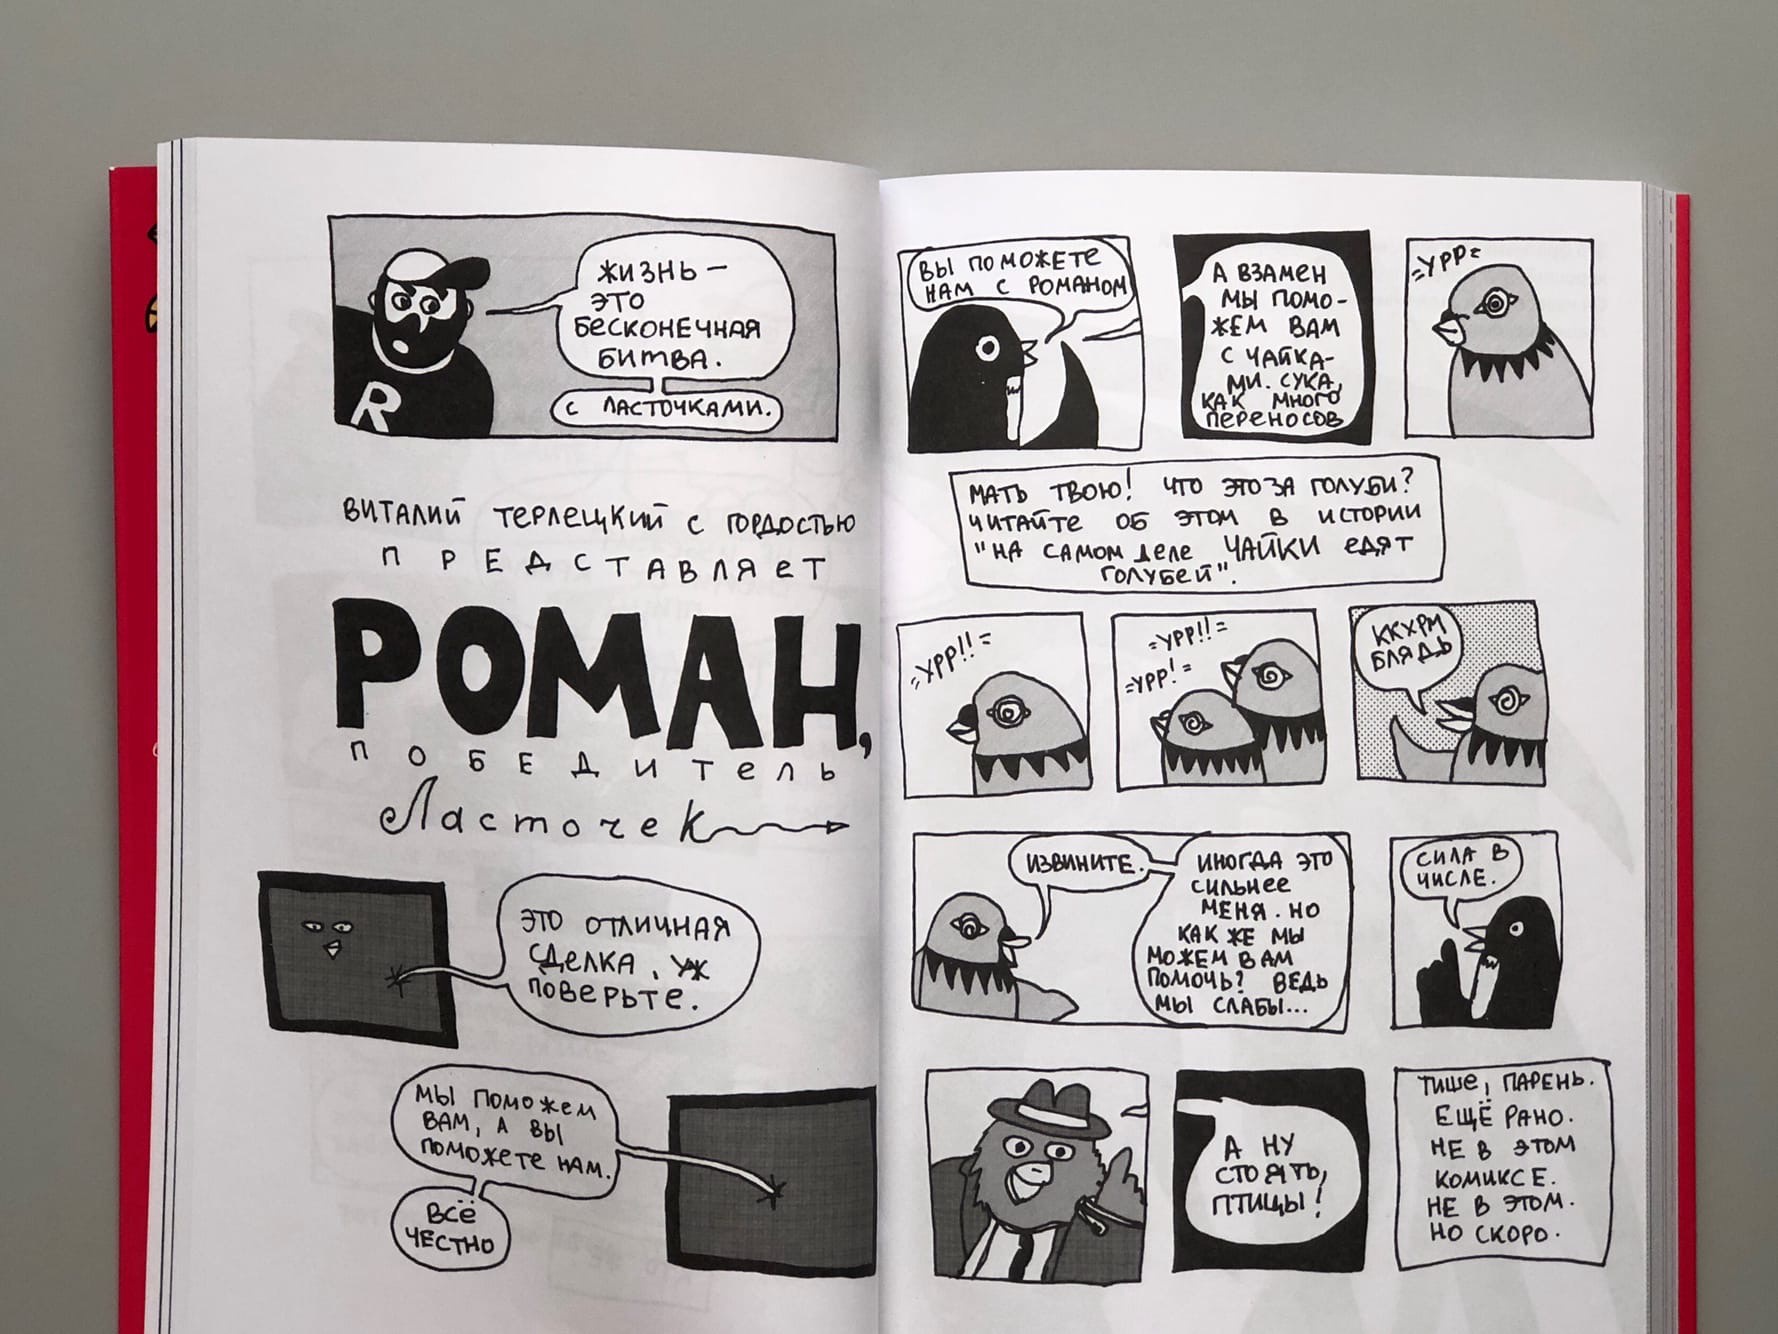 ЖИЗНЬ —
ЭТО
БЕСКОНЕЧНАЯ
БИТВА.
С ЛАСТОЧКАМИ.
R
ВИТАЛИЙ ТЕРЛЕЦКИЙ С ГОРДОСТЬЮ
ПРЕДСТАВЛЯЕТ
РОМАН,
ПОБЕДИТЕЛЬ
Ласточек
ЭТО ОТЛИЧНАЯ
СДЕЛКА, УЖ
ПОВЕРЬТЕ.
МЫ ПОМОЖЕМ
ВАМ, А ВЫ
ПОМОЖЕТЕ НАМ.
ВСЁ
ЧЕСТНО
ВЫ ПОМОЖЕТЕ
НАМ С РОМАНОМ
А ВЗАМЕН
МЫ ПОМО-
ЖЕМ ВАМ
С ЧАЙКА-
МИ. СУКА,
КАК МНОГО
ПЕРЕНОСОВ
=УРР=
МАТЬ ТВОЮ! ЧТО ЭТО ЗА ГОЛУБИ?
ЧИТАЙТЕ ОБ ЭТОМ В ИСТОРИИ
"НА САМОМ ДЕЛЕ ЧАЙКИ ЕДЯТ
ГОЛУБЕЙ".
=УРР!!=
=УРР!!=
=УРР!=
ККХРМ
БЛЯДЬ
ИЗВИНИТЕ.
ИНОГДА ЭТО
СИЛЬНЕЕ
МЕНЯ. НО
КАК ЖЕ МЫ
МОЖЕМ ВАМ
ПОМОЧЬ? ВЕДЬ
МЫ СЛАБЫ...
СИЛА В
ЧИСЛЕ.
А НУ
СТОЯТЬ,
ПТИЦЫ!
ТИШЕ, ПАРЕНЬ.
ЕЩЁ РАНО.
НЕ В ЭТОМ
КОМИКСЕ.
НЕ В ЭТОМ.
НО СКОРО.